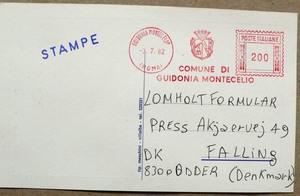 GUIDONIA MONTECELIO
-3.7.82
(ROMA)
POSTE ITALIANE
200
STAMPE
COMUNE DI
GUIDONIA MONTECELIO
LOMHOLT FORMULAR
PRESS Akjaervej 49
DK FALLING
8300 ODDER (Denkmark)